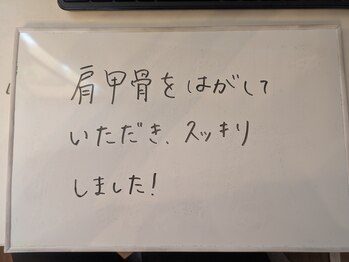 肩甲骨をはがして
いただき、スッキリ
しました!